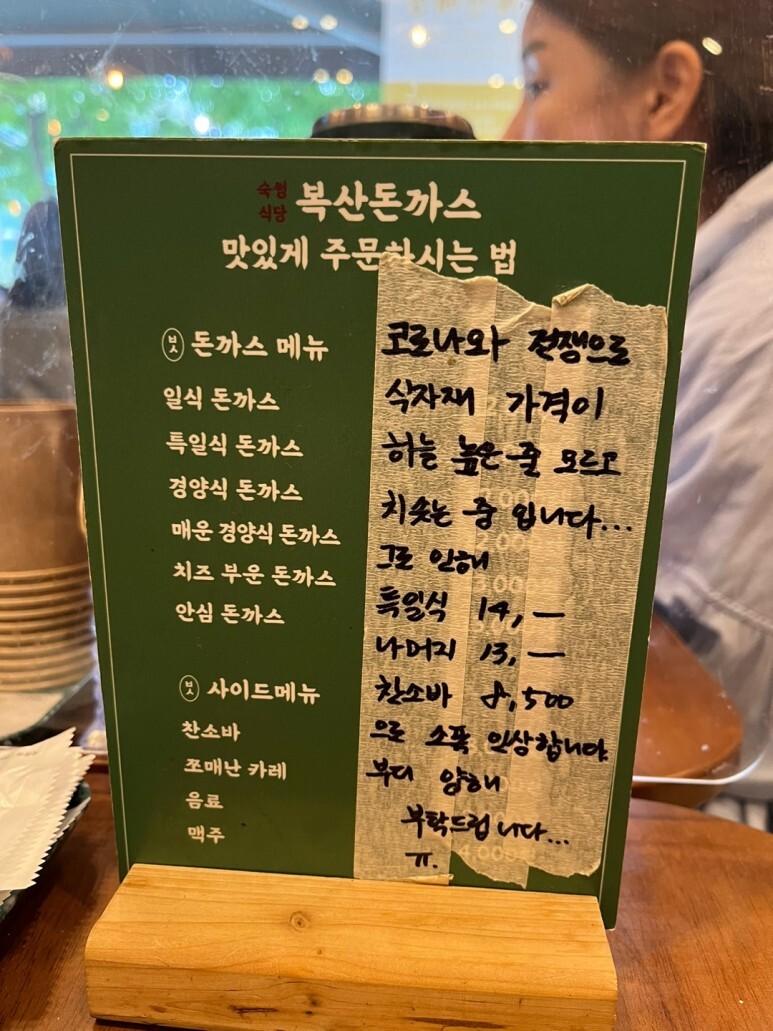 숙성
식당
복산돈까스
맛있게 주문하시는 법
돈까스 메뉴
일식 돈까스
특일식 돈까스
경양식 돈까스
매운 경양식 돈까스
치즈 부운 돈까스
안심 돈까스
사이드메뉴
찬소바
쪼매난 카레
음료
맥주
코로나와 전쟁으로
식자재 가격이
하늘 높은 줄 모르고
치솟는 중 입니다...
그로 인해
특일식 14,—
나머지 13,—
찬소바 8,500
으로 소폭 인상합니다.
부디 양해
부탁드립니다...
ㅠ.